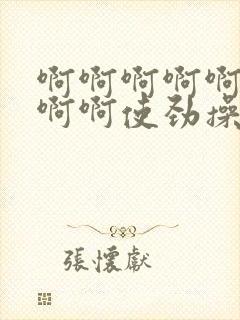 啊啊啊啊啊
啊啊使劲操
張懷獻